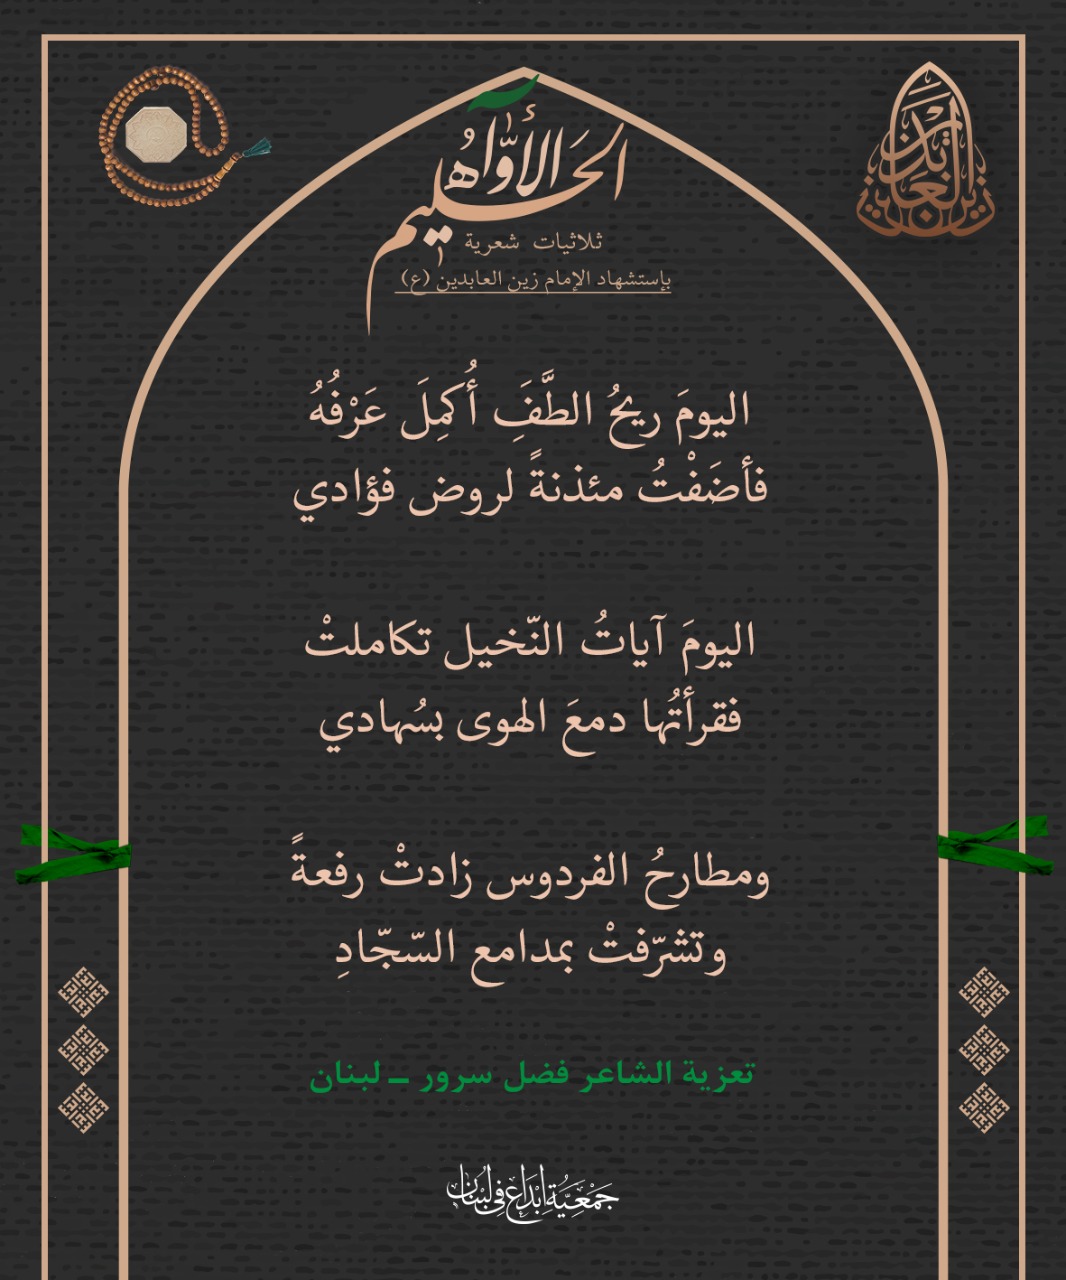 زين العابدين
الأوّاه الحليم
ثلاثيات شعرية
بإستشهاد الإمام زين العابدين (ع)
اليومَ ريحُ الطَّفَِ أُكمِلَ عَرْفُهُ
فأضَفْتُ مئذنةً لروض فؤادي
اليومَ آياتُ النّخيل تكاملتْ
فقرأتُها دمعَ الهوى بسُهادي
ومطارحُ الفردوس زادتْ رفعةً
وتشرّفتْ بمدامع السّجّادِ
تعزية الشاعر فضل سرور – لبنان
جَمْعِيَّةُ إبْدَاع فِي لُبْنَان